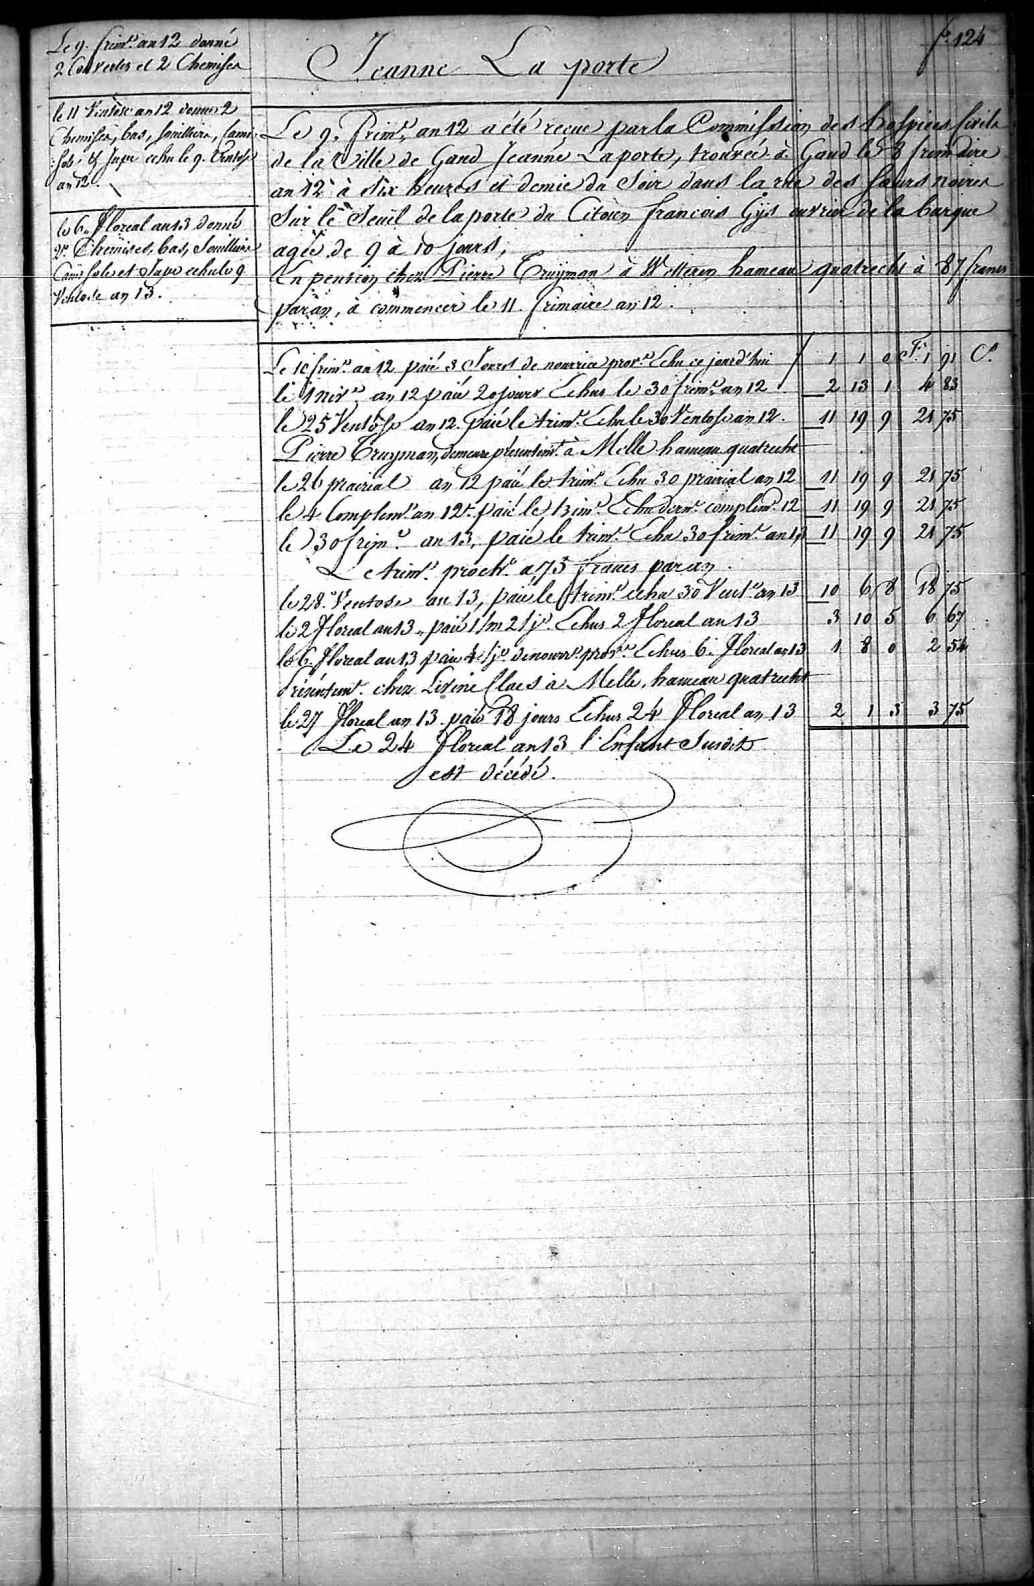 fo. 124
Le 9. frimre. an 12 donné
2 Couvertes et 2 Chemises
le 11 Ventôse an 12 donné 2
Chemises, bas, souilliere, Cami-
-sole et Jupe echu le 9. Ventose
an 12.
le 6. Floreal an 13 donné
2. Chemises, bas, Souilliere
Camisole et Jupe echu le 9
Ventose an 13.
Jeanne La porte
Le 9. frimre. an 12 a été reçue par la Commission des hospices Civils
de la Ville de Gand Jeanne Laporte, trouvée à Gand le 8 frimaire
an 12 à Six heures et demie du Soir dans la rue des Sœurs noires
Sur le Seuil de la porte du Citoïen francois Gijs ouvrier de la barque
agée de 9 à 10 jours,
En pension chez Pierre Truijman à Wetteren hameau quatrecht à 87 francs
par an, à commencer le 11 frimaire an 12.
Le 10 frimre. an 12 paié 3 Jours de nourrice provre. Echu ce jourd'hui 1 1 0 F. 1 91 Cs.
le 1 nivse. an 12 paié 20 jours Echus le 30 frimre. an 12 2 13 1 4 83
le 25 Ventôse an 12. paié le trimre. Echu le 30 Ventose an 12. 11 19 9 21 75
Pierre Truyman, demeure présentemt. à Melle hameau quatrecht
le 26 prairial an 12 paié le trimre. Echu 30 prairial an 12 11 19 9 21 75
le 4 Complemre. an 12e. paié le trimre. Echu dernr. complemre. 12 11 19 9 21 75
le 30 frimre. an 13, paié le trimre. Echu 30 frimre. an 13 11 19 9 21 75
Le trimre. proche. a 75 francs par an.
le 28. Ventose an 13, paié le trimre. echu 30 Ventse. an 13 10 6 8 18 75
le 2 Floreal an 13, paié 1/m 2/js. Echus 2 Floreal an 13 3 10 5 6 67
le 6. Floreal an 13 paié 4/js. de nourre. provre. Echus 6. Floreal an 13 1 8 0 2 54
Présentemt. chez Livine Claes à Melle, hameau quatrecht
le 27 Floreal an 13. paié 18 jours Echus 24 Floreal an 13 2 1 3 3 75
Le 24 Floreal an 13 l'Enfant Susdit
est décédé.